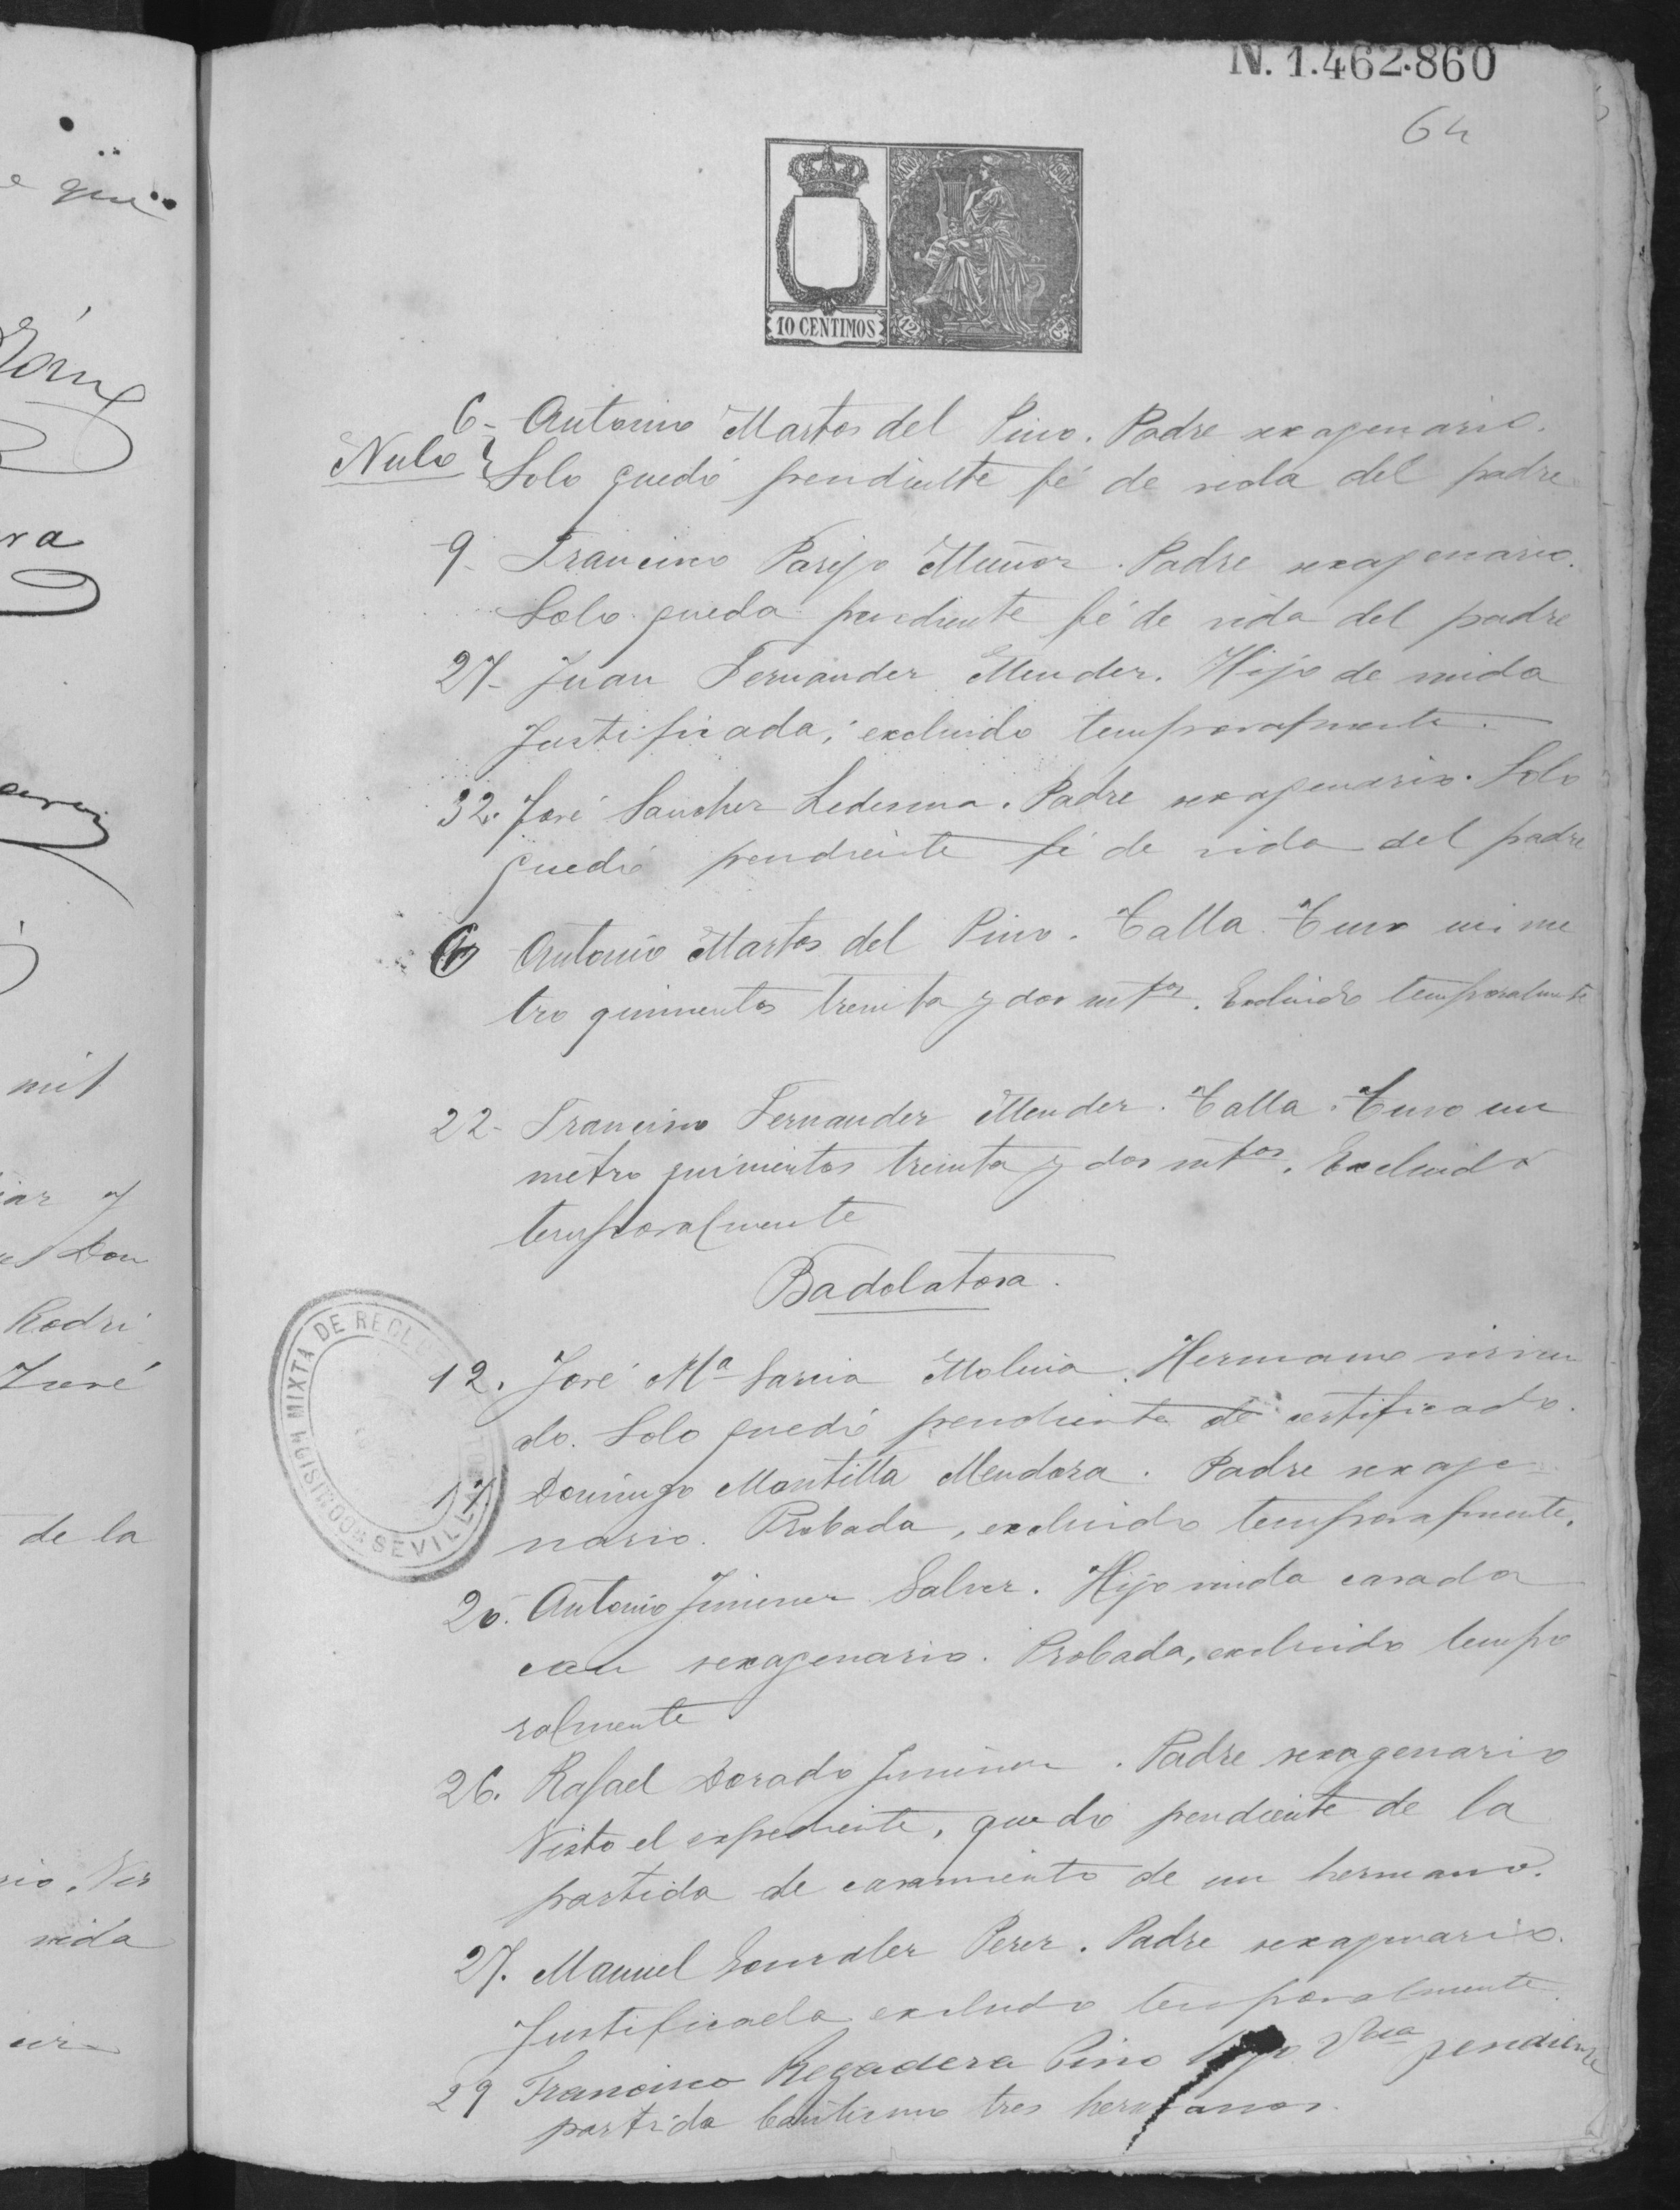 N. 1.462.860
64
10 CENTIMOS
6- Antonio Martos del Pino. Padre sexagenario.
Nulo Solo quedó pendiente fé de vida del padre
9- Francisco Parejo Muñoz. Padre sexagenario.
Solo queda pendiente fé de vida del padre
27- Juan Fernandez Mendez. Hijo de viuda
Justificada, excluido temporalmente.
32. José Sanchez Ledesma. Padre sexagenario. Solo
quedó pendiente fé de vida del padre
6 Antonio Martos del Pino. Talla. Tuvo un me
tro quinientos treinta y dos mtos. Excluido temporalmente
22- Francisco Fernandez Mendez. Talla. Tuvo un
metro quinientos treinta y dos mtos. Excluido
temporalmente
Badolatosa.
12. José Mª Garcia Molina. Hermano sirvien
do. Solo quedó pendiente de certificado.
17 Domingo Montilla Mendoza. Padre sexage
nario. Probada, excluido temporalmente.
20. Antonio Jimenez Galvez. Hijo viuda casada
con sexagenario. Probada, excluido tempo
ralmente
26. Rafael Dorado Jimenez. Padre sexagenario
Visto el expediente, quedó pendiente de la
partida de casamiento de un hermano.
27. Manuel Gonzalez Perez. Padre sexagenario.
Justificada excluido temporalmente.
29 Francisco Regadera Pino Hijo Vda pendiente
partida bautismo tres hermanos.
COMISION MIXTA DE SEVILLA
que
ra
mil
y
Don
Rodri
José
de la
vida